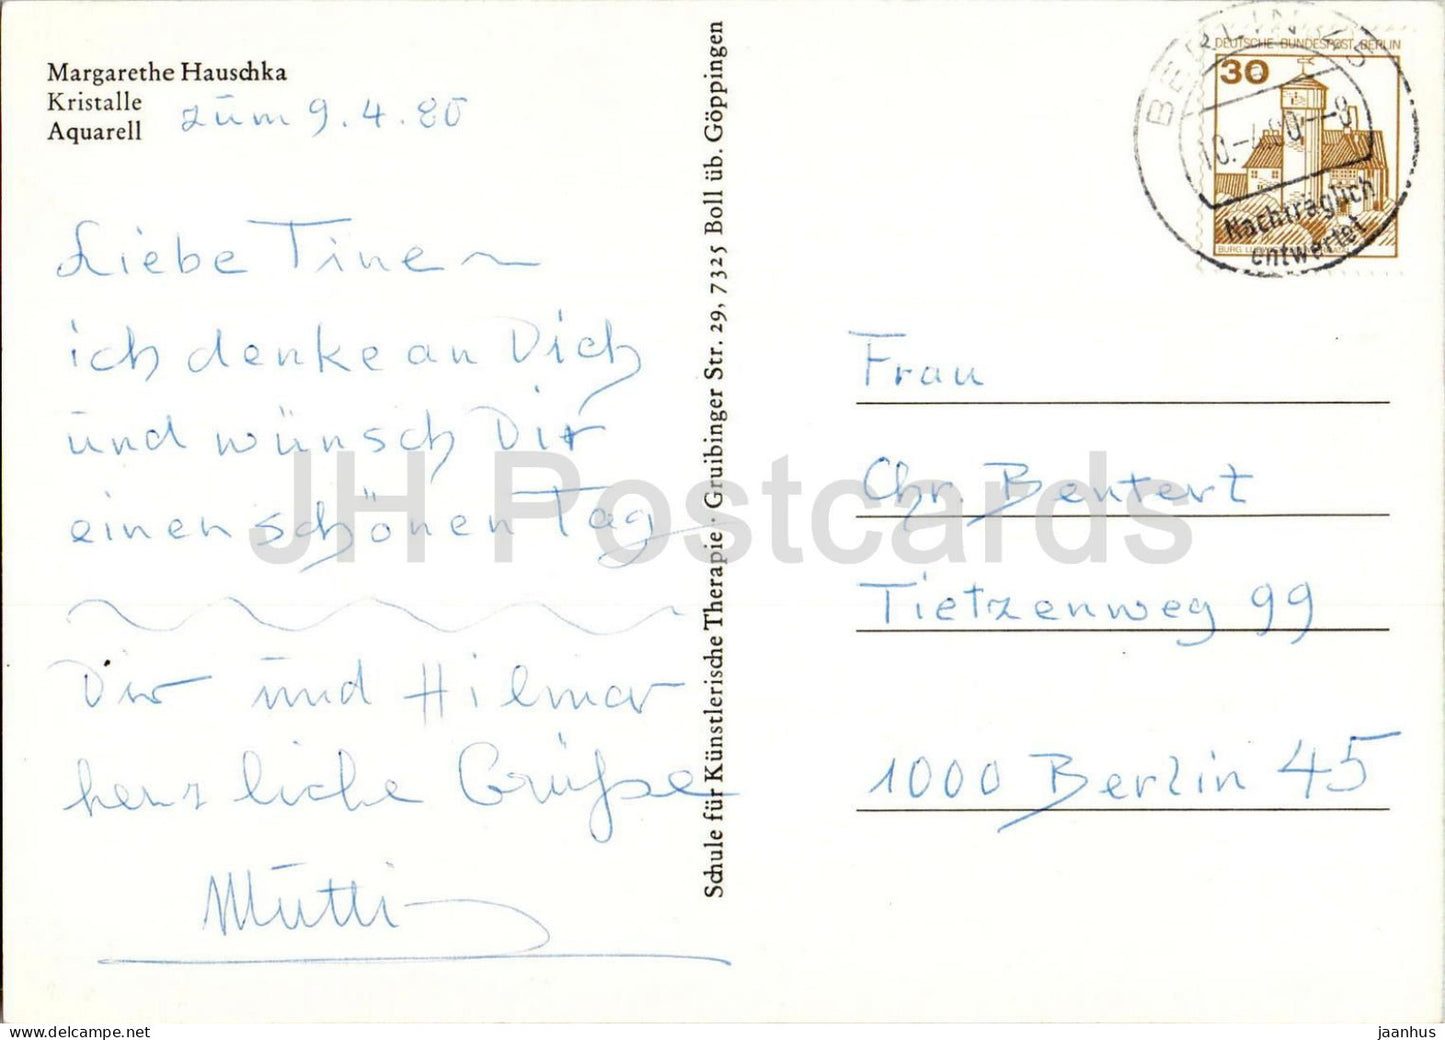 Margarethe Hauschka
Kristalle
Aquarell
zum 9.4.80
Liebe Tine ~
ich denke an Dich
und wünsch Dir
einen schönen Tag
Dir und Hilmar
herzliche Grüße
Mutti
Schule für Künstlerische Therapie · Gruibinger Str. 29, 7325 Boll üb. Göppingen
DEUTSCHE BUNDESPOST BERLIN
30
BERLIN
10.-4.80
Nachträglich
entwertet
Frau
Chr. Bentert
Tietzenweg 99
1000 Berlin 45
JH Postcards
jaanhus © www.delcampe.net